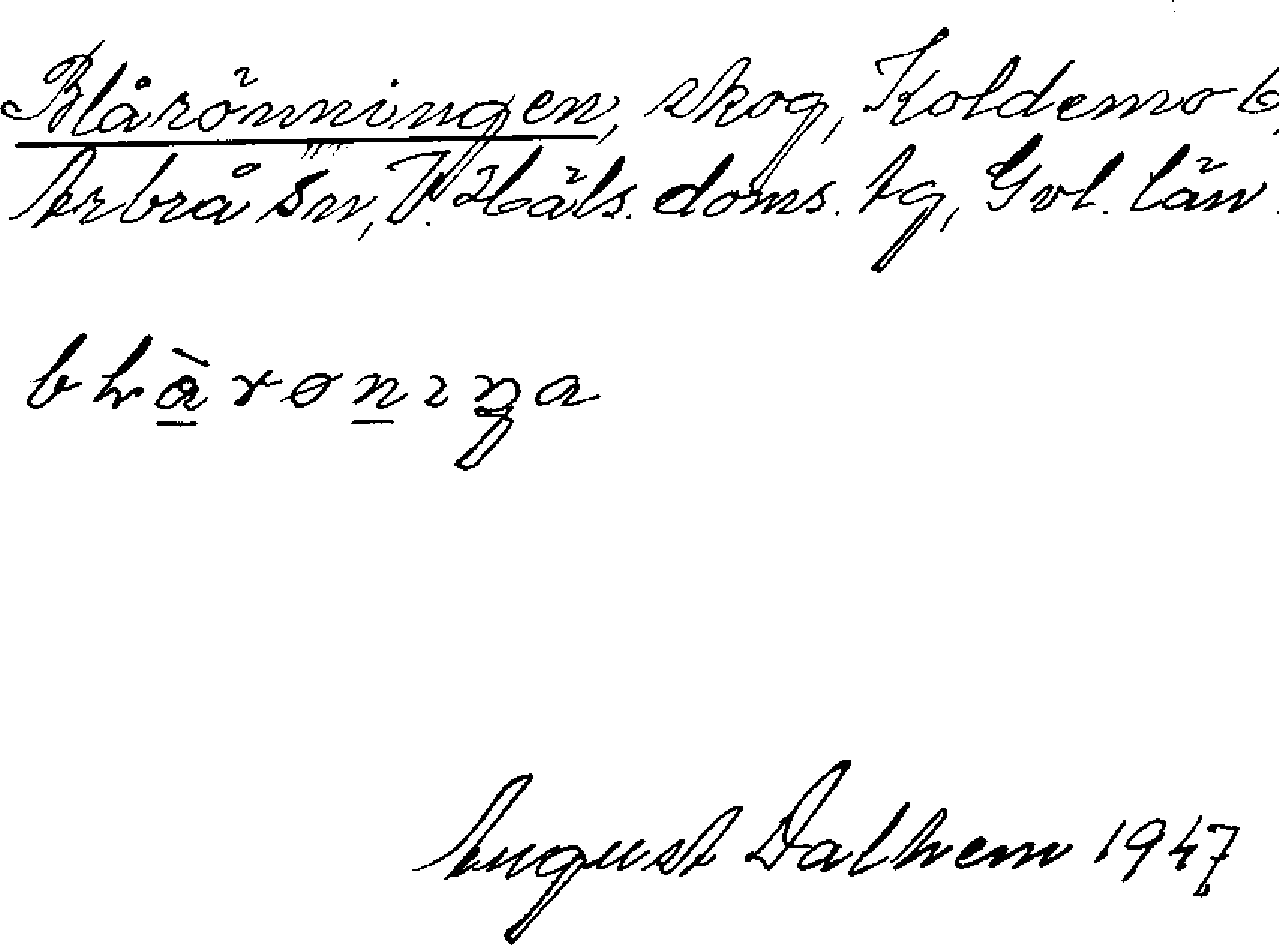 Blårönningen, skog, Koldemo 6,
Arbrå sn, V. Häls. doms. tg, Gvl. län.
August Dalhem 1947